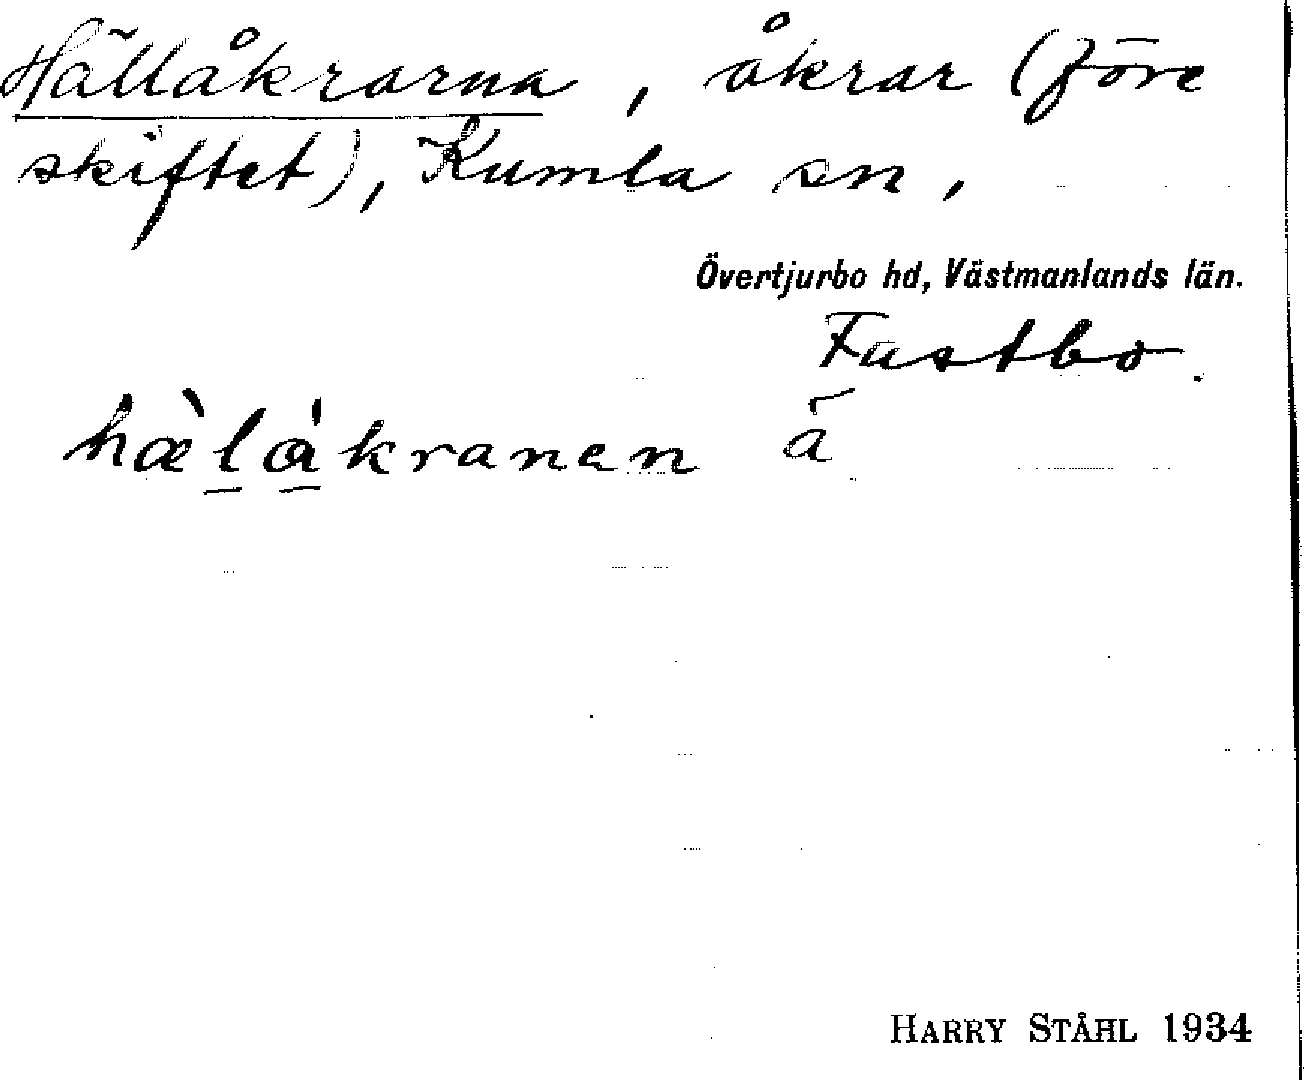 Hällåkrarna, åkrar (före
skiftet), Kumla sn,
Övertjurbo hd, Västmanlands län.
Fastbo.
hæ̀lå̀kranen ä
HARRY STÅHL 1934